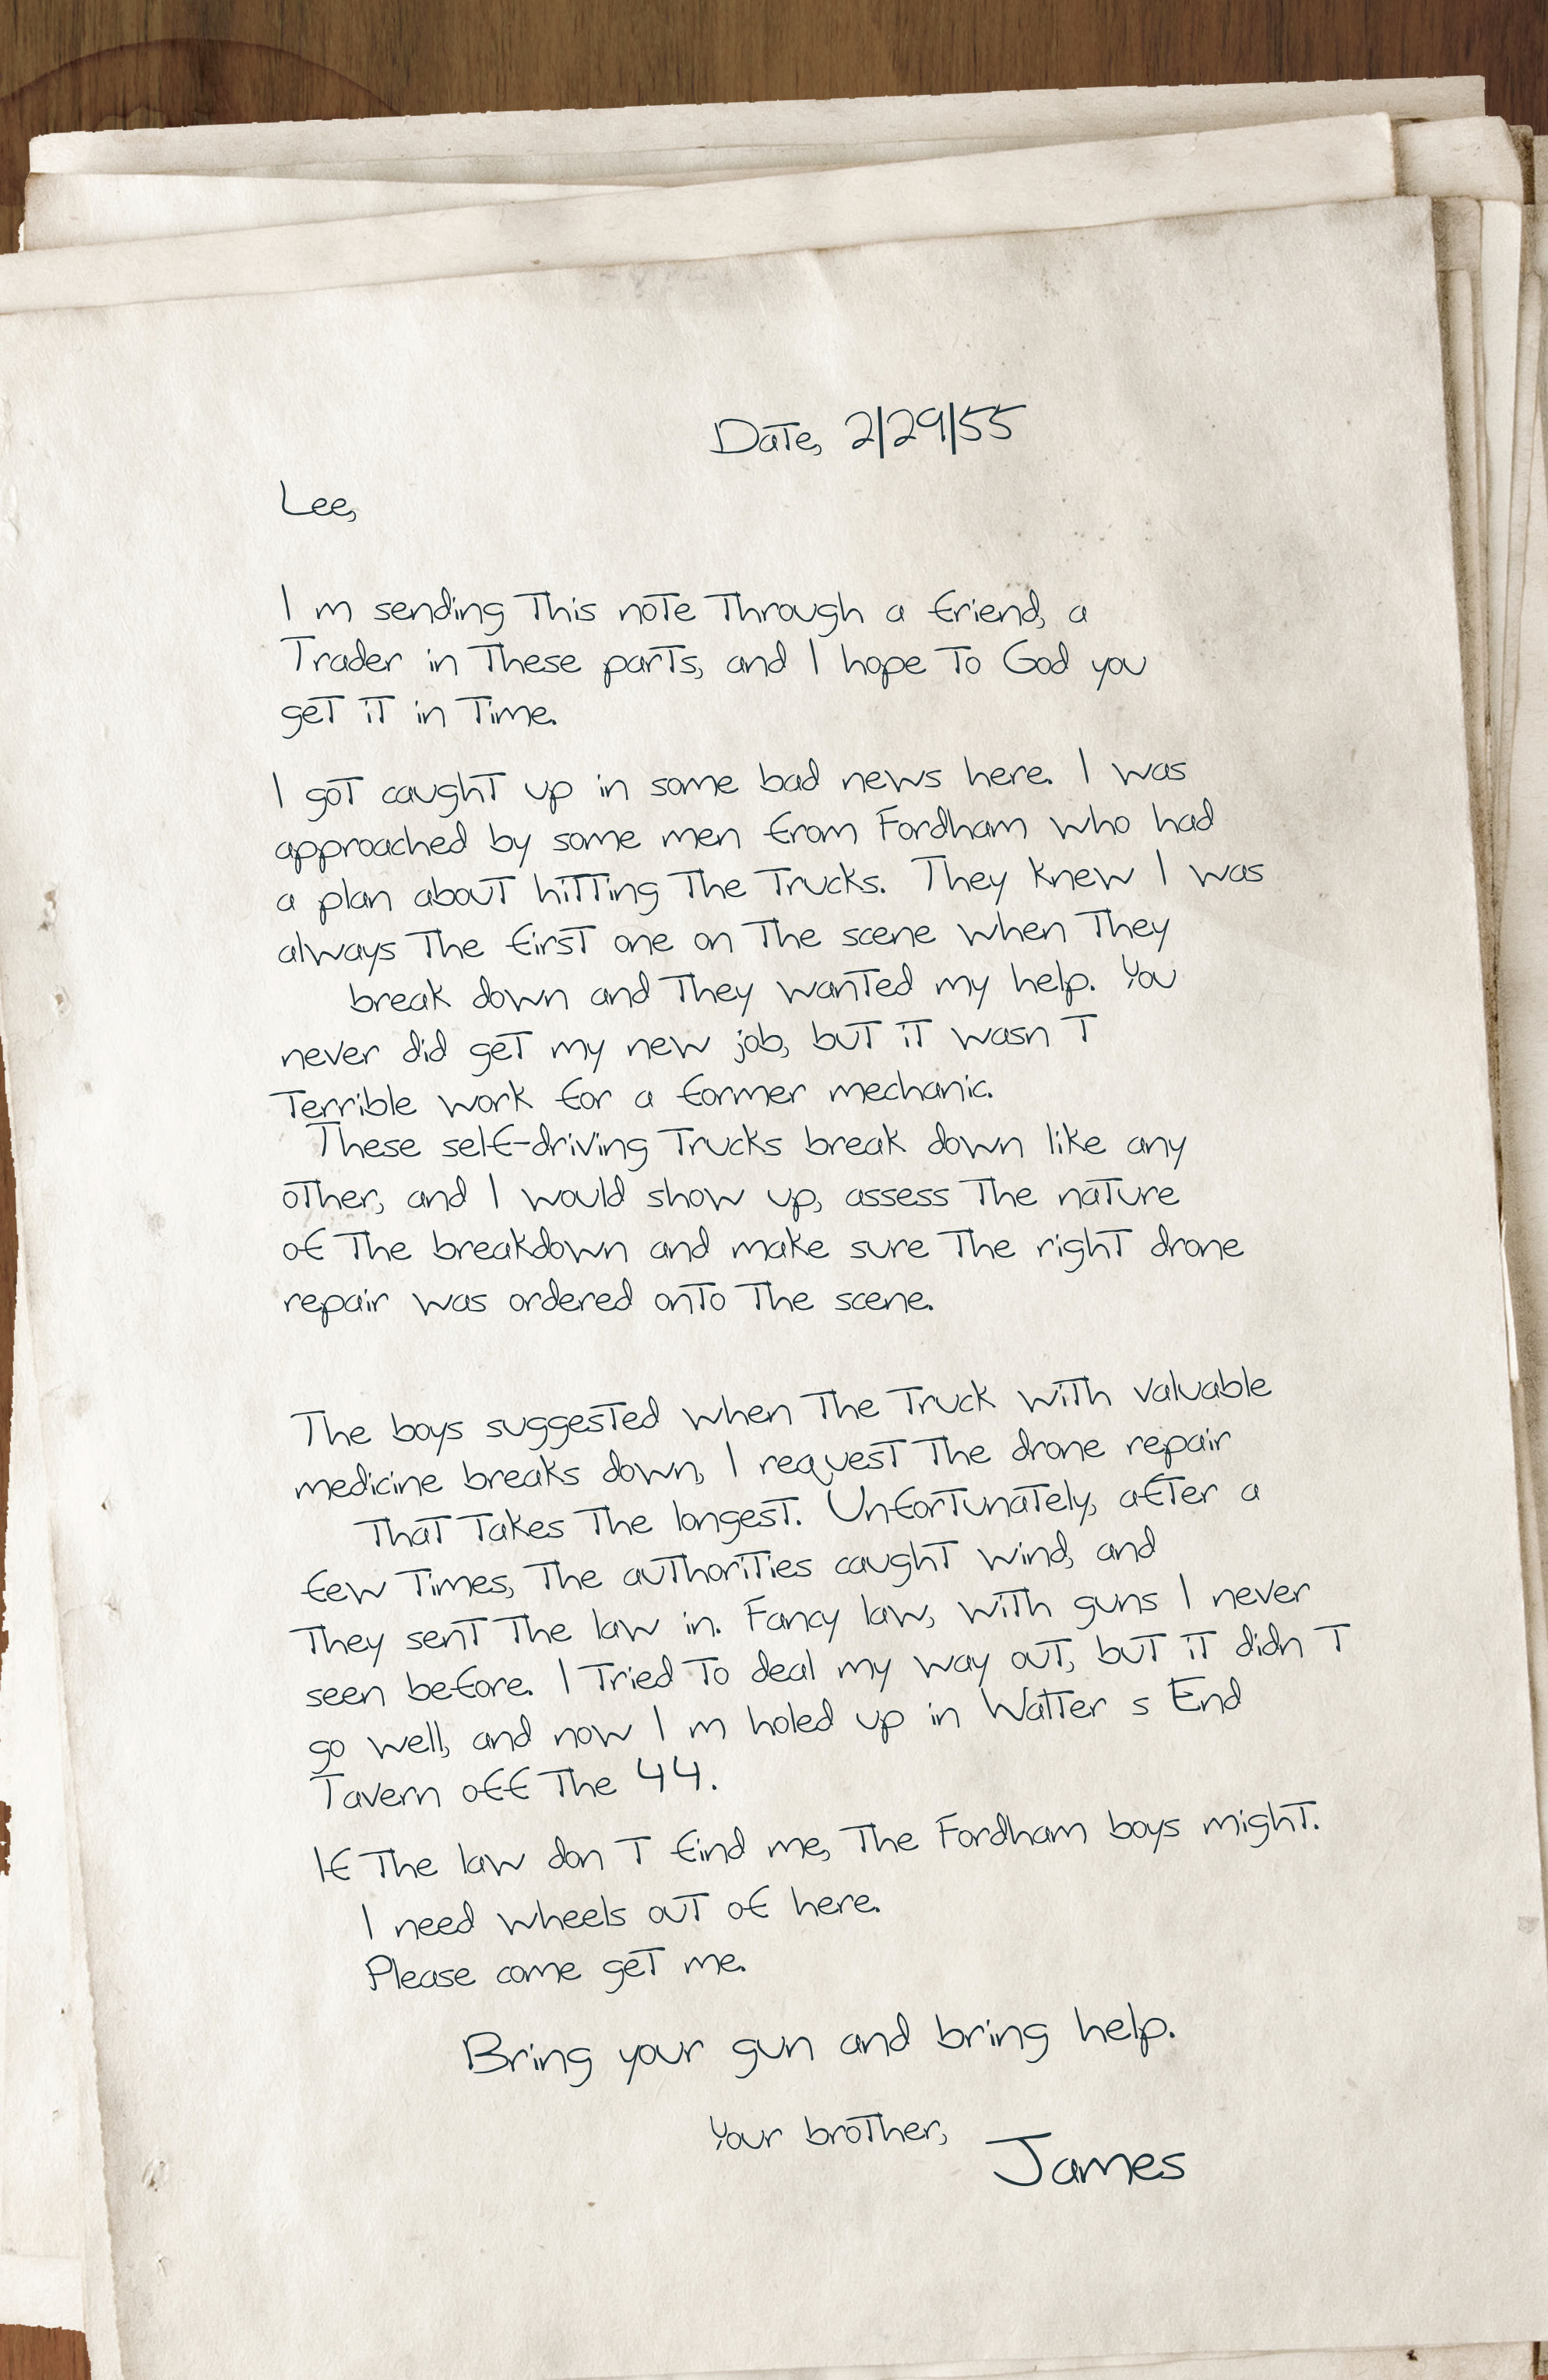 Date, 2/29/55
Lee,
I m sending this note through a friend, a
trader in these parts, and I hope to God you
get it in time.
I got caught up in some bad news here. I was
approached by some men from Fordham who had
a plan about hitting the trucks. They knew I was
always the first one on the scene when they
break down and they wanted my help. You
never did get my new job, but it wasn t
terrible work for a former mechanic.
These self-driving trucks break down like any
other, and I would show up, assess the nature
of the breakdown and make sure the right drone
repair was ordered onto the scene.
The boys suggested when the truck with valuable
medicine breaks down, I request the drone repair
that takes the longest. Unfortunately, after a
few times, the authorities caught wind, and
they sent the law in. Fancy law, with guns I never
seen before. I tried to deal my way out, but it didn t
go well, and now I m holed up in Watter s End
Tavern off the 44.
If the law don t find me, the Fordham boys might.
I need wheels out of here.
Please come get me.
Bring your gun and bring help.
Your brother,
James